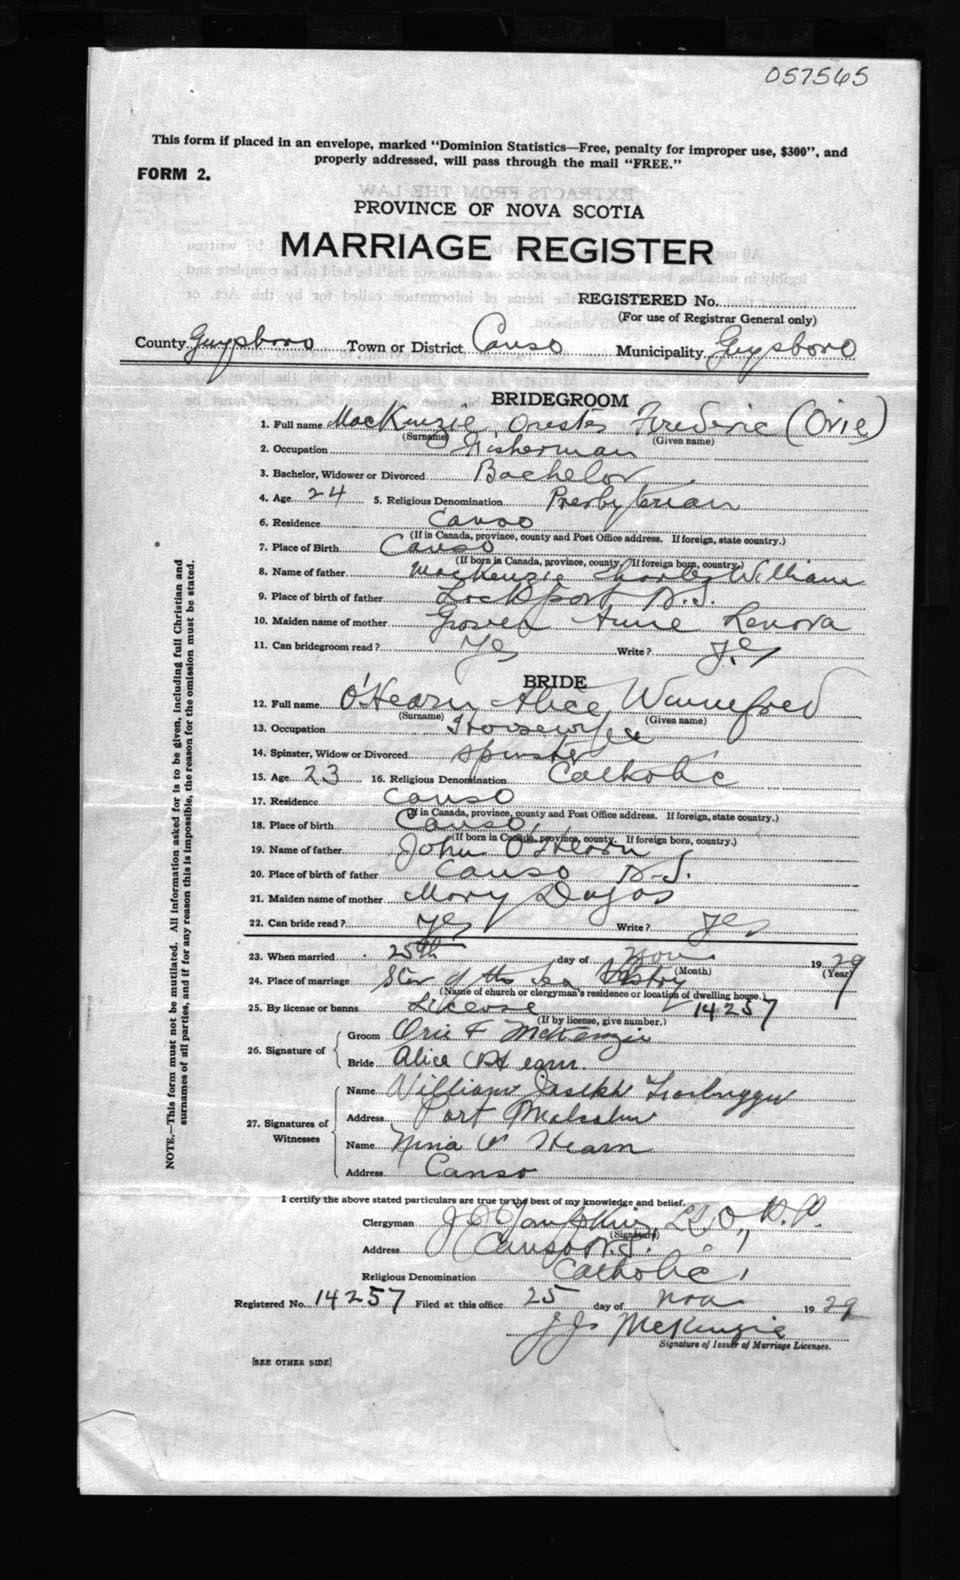 057565
This form if placed in an envelope, marked "Dominion Statistics—Free, penalty for improper use, $300", and
properly addressed, will pass through the mail "FREE."
FORM 2.
PROVINCE OF NOVA SCOTIA
MARRIAGE REGISTER
REGISTERED No.
(For use of Registrar General only)
County Guysboro Town or District Canso Municipality Guysboro
BRIDEGROOM
1. Full name MacKenzie Orestes Frederic (Orie)
(Surname) (Given name)
2. Occupation Fisherman
3. Bachelor, Widower or Divorced Bachelor
4. Age 24 5. Religious Denomination Presbyterian
6. Residence Canso
(If in Canada, province, county and Post Office address. If foreign, state country.)
7. Place of Birth Canso
(If born in Canada, province, county. If foreign born, country.)
8. Name of father MacKenzie Charles William
9. Place of birth of father Lockport N.S.
10. Maiden name of mother Annie Lenora
11. Can bridegroom read? Yes Write? Yes
BRIDE
12. Full name O'Hearn Alice Winnefred
(Surname) (Given name)
13. Occupation Housewife
14. Spinster, Widow or Divorced Spinster
15. Age 23 16. Religious Denomination Catholic
17. Residence Canso
(If in Canada, province, county and Post Office address. If foreign, state country.)
18. Place of birth Canso
(If born in Canada, province, county. If foreign born, country.)
19. Name of father John O'Hearn
20. Place of birth of father Canso N.S.
21. Maiden name of mother Mary
22. Can bride read? Yes Write? Yes
23. When married 25th day of Nov 1929
(Month) (Year)
24. Place of marriage Star of the Sea Vestry
(Name of church or clergyman's residence or location of dwelling house.)
25. By license or banns License 14257
(If by license, give number.)
26. Signature of
Groom Orie F McKenzie
Bride Alice O'Hearn
27. Signatures of Witnesses
Name William Joseph
Address Port Malcolm
Name Nina O'Hearn
Address Canso
I certify the above stated particulars are true to the best of my knowledge and belief.
Clergyman P.P.
(Signature)
Address Canso N.S.
Religious Denomination Catholic
Registered No. 14257 Filed at this office 25 day of Nov 1929
McKenzie
Signature of Issuer of Marriage Licenses.
[SEE OTHER SIDE]
NOTE.—This form must not be mutilated. All information asked for is to be given, including full Christian and
surnames of all parties, and if for any reason this is impossible, the reason for the omission must be stated.